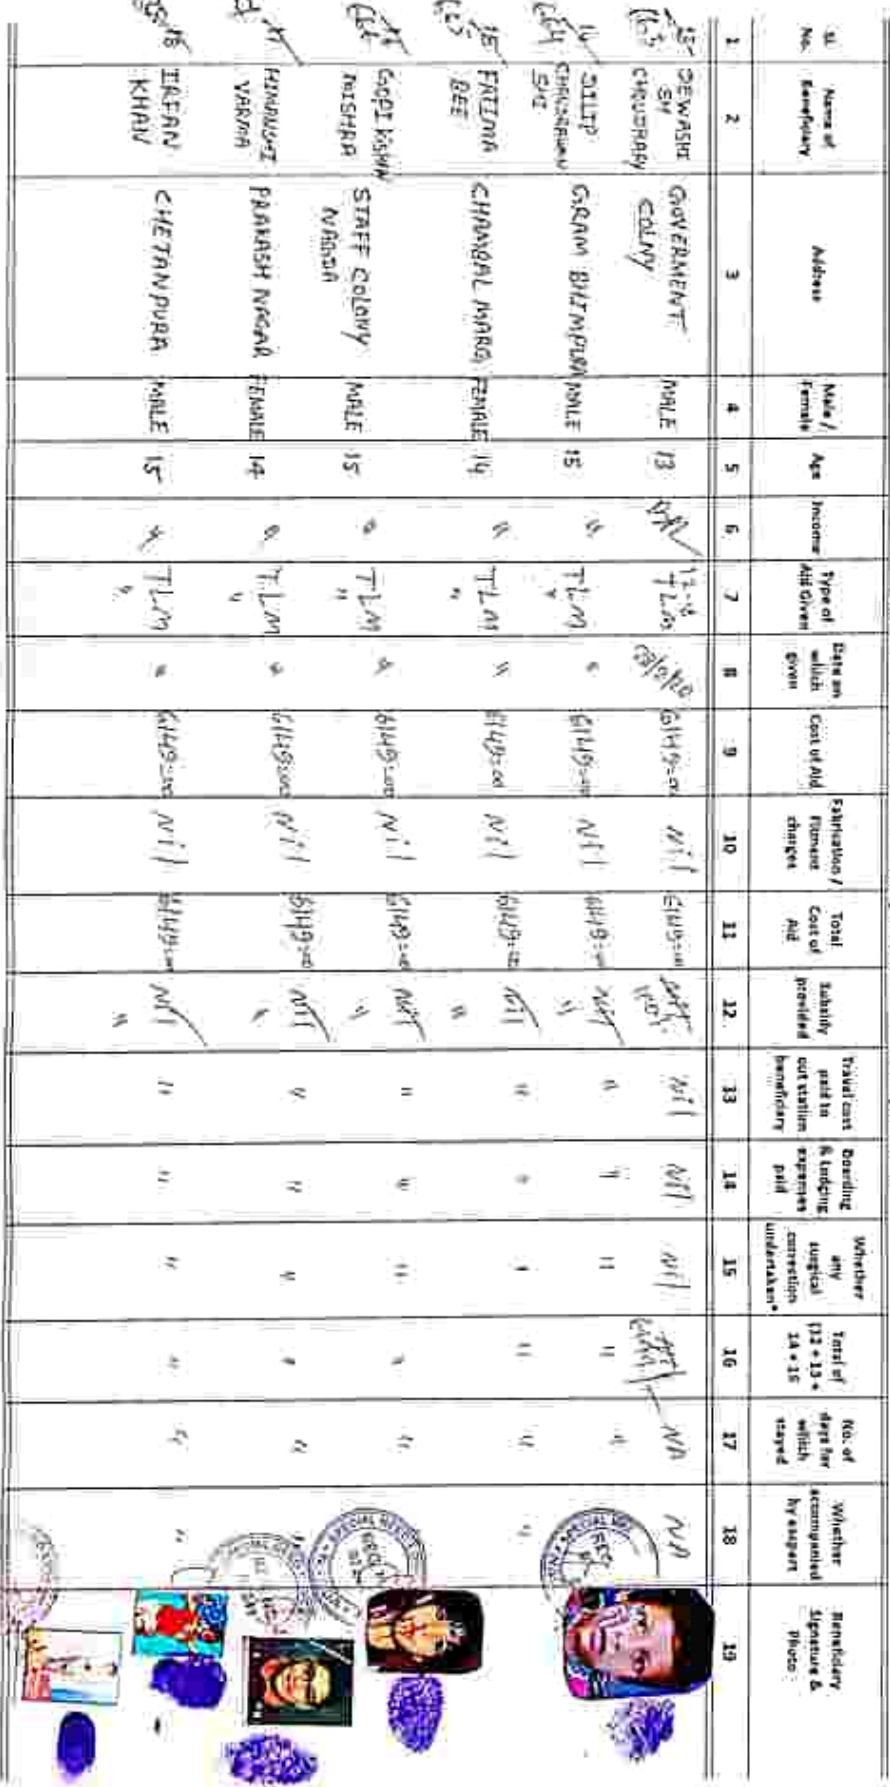 Sl. No.
Name of Beneficiary
Address
Male / Female
Age
Income
Type of Aid Given
Date on which given
Cost of Aid
Fabrication / Fitment charges
Total Cost of Aid
Subsidy provided
Travel cost paid to out station beneficiary
Boarding & Lodging expenses paid
Whether any surgical correction undertaken*
Total of (12 + 13 + 14 + 15
No. of days for which stayed
Whether accompanied by escort
Beneficiary Signature & Photo
1 2 3 4 5 6 7 8 9 10 11 12 13 14 15 16 17 18 19
DEWASHI CHOUDHARY GOVERMENT COLNY MALE 13 TLM 6149=00 Nil 6149=00 Nil Nil Nil NA NA
14 DILIP CHANDRAWAN SHI GRAM BHIMPURA MALE 15 " TLM " " 6149=00 Nil 6149=00 Nil " " " " " "
15 FATIMA BEE CHAMBAL MARG FEMALE 14 " TLM " " 6149=00 Nil 6149=00 Nil " " " " " " "
GOPI KISHAN MISHRA STAFF COLONY NAGDA MALE 15 " TLM " " 6149=00 Nil 6149=00 Nil " " " " " "
17 HIMANSHI VARMA PRAKASH NAGAR FEMALE 14 " TLM " " 6149=00 Nil 6149=00 Nil " " " " " "
18 IRFAN KHAN CHETANPURA MALE 15 " TLM " " 6149=00 Nil 6149=00 Nil " " " " " " "
SPECIAL NEEDS